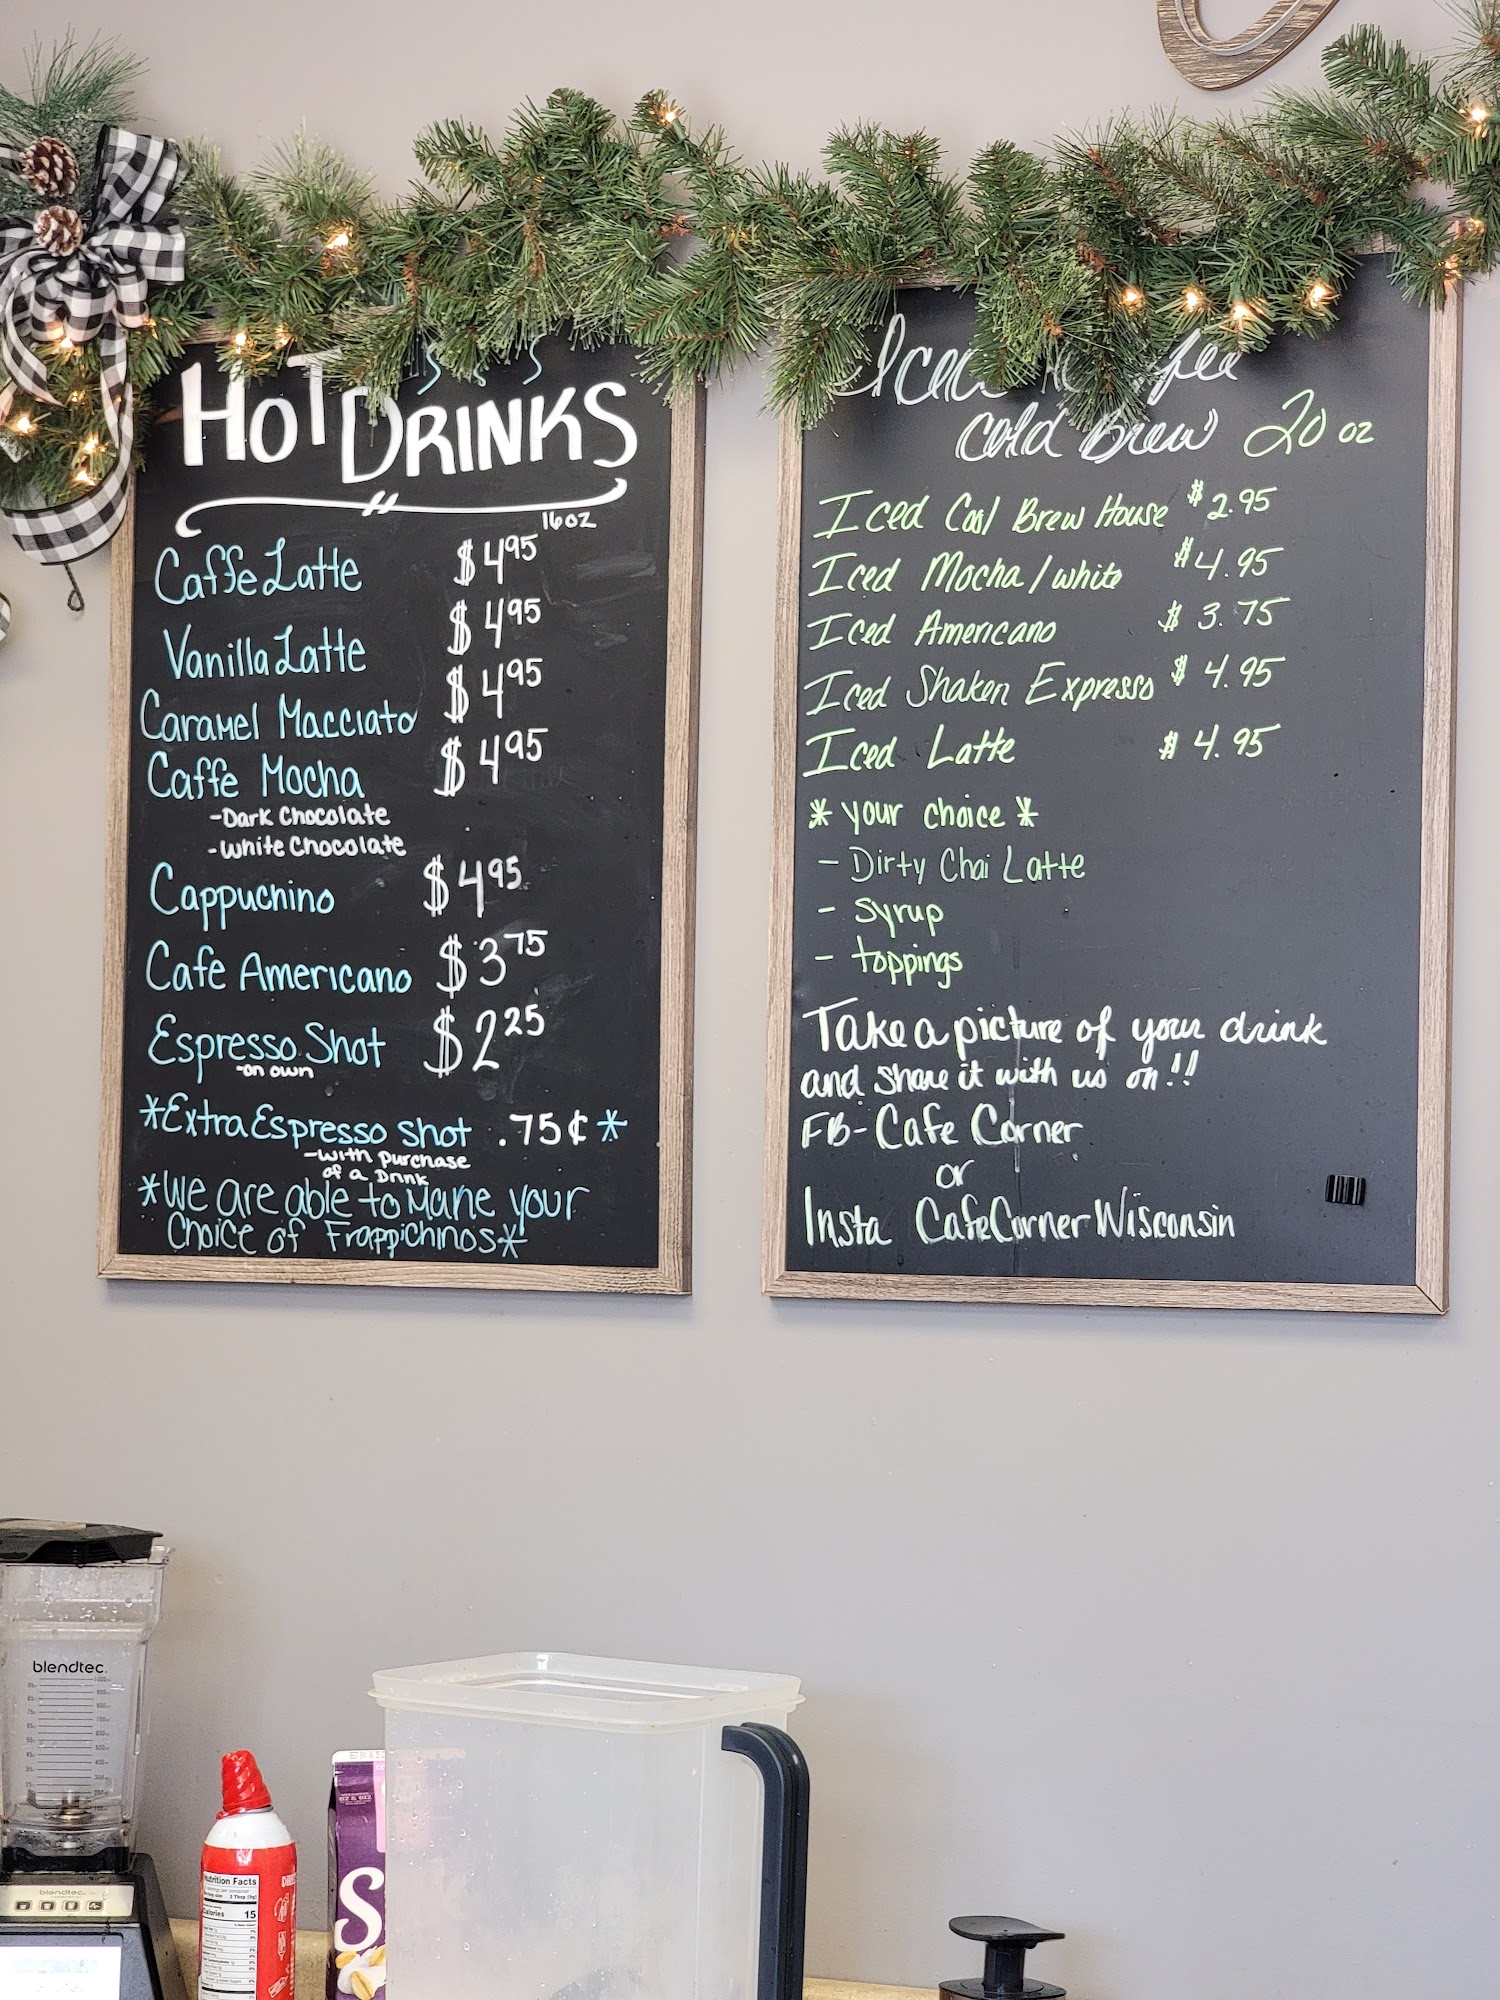 HOT DRINKS
16oz
Caffe Latte $4.95
Vanilla Latte $4.95
Caramel Macciato $4.95
Caffe Mocha $4.95
-Dark Chocolate
-White Chocolate
Cappuchino $4.95
Cafe Americano $3.75
Espresso Shot $2.25
-on own
*Extra Espresso shot .75¢*
-with purchase
of a Drink
*We are able to make your
choice of Frappichinos*
Cold Brew 20 oz
Iced Cool Brew House $2.95
Iced Mocha/white $4.95
Iced Americano $3.75
Iced Shaken Expresso $4.95
Iced Latte $4.95
* your choice *
- Dirty Chai Latte
- syrup
- toppings
Take a picture of your drink
and share it with us on!!
FB- Cafe Corner
or
Insta CafeCornerWisconsin
blendtec
blendtec
Nutrition Facts
Calories 15
S